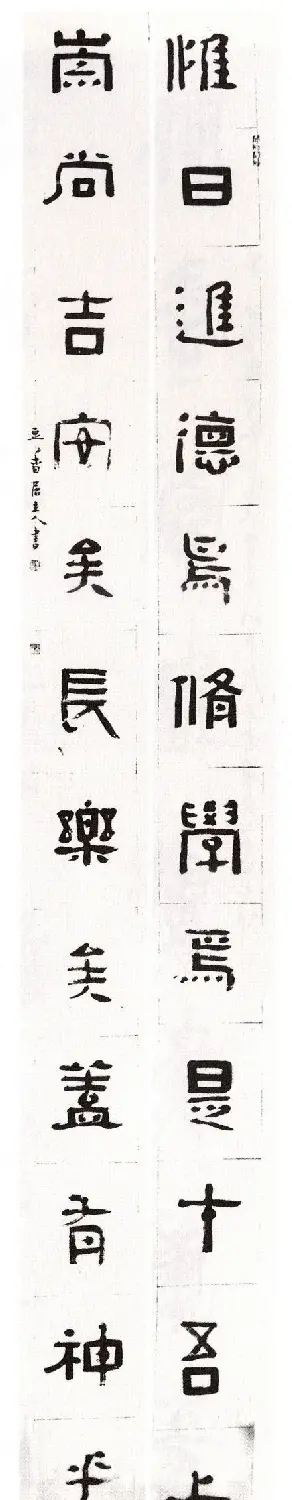 惟日進德焉脩學焉是吾
崇尚吉安矣長樂矣蓋有神乎
居主人書